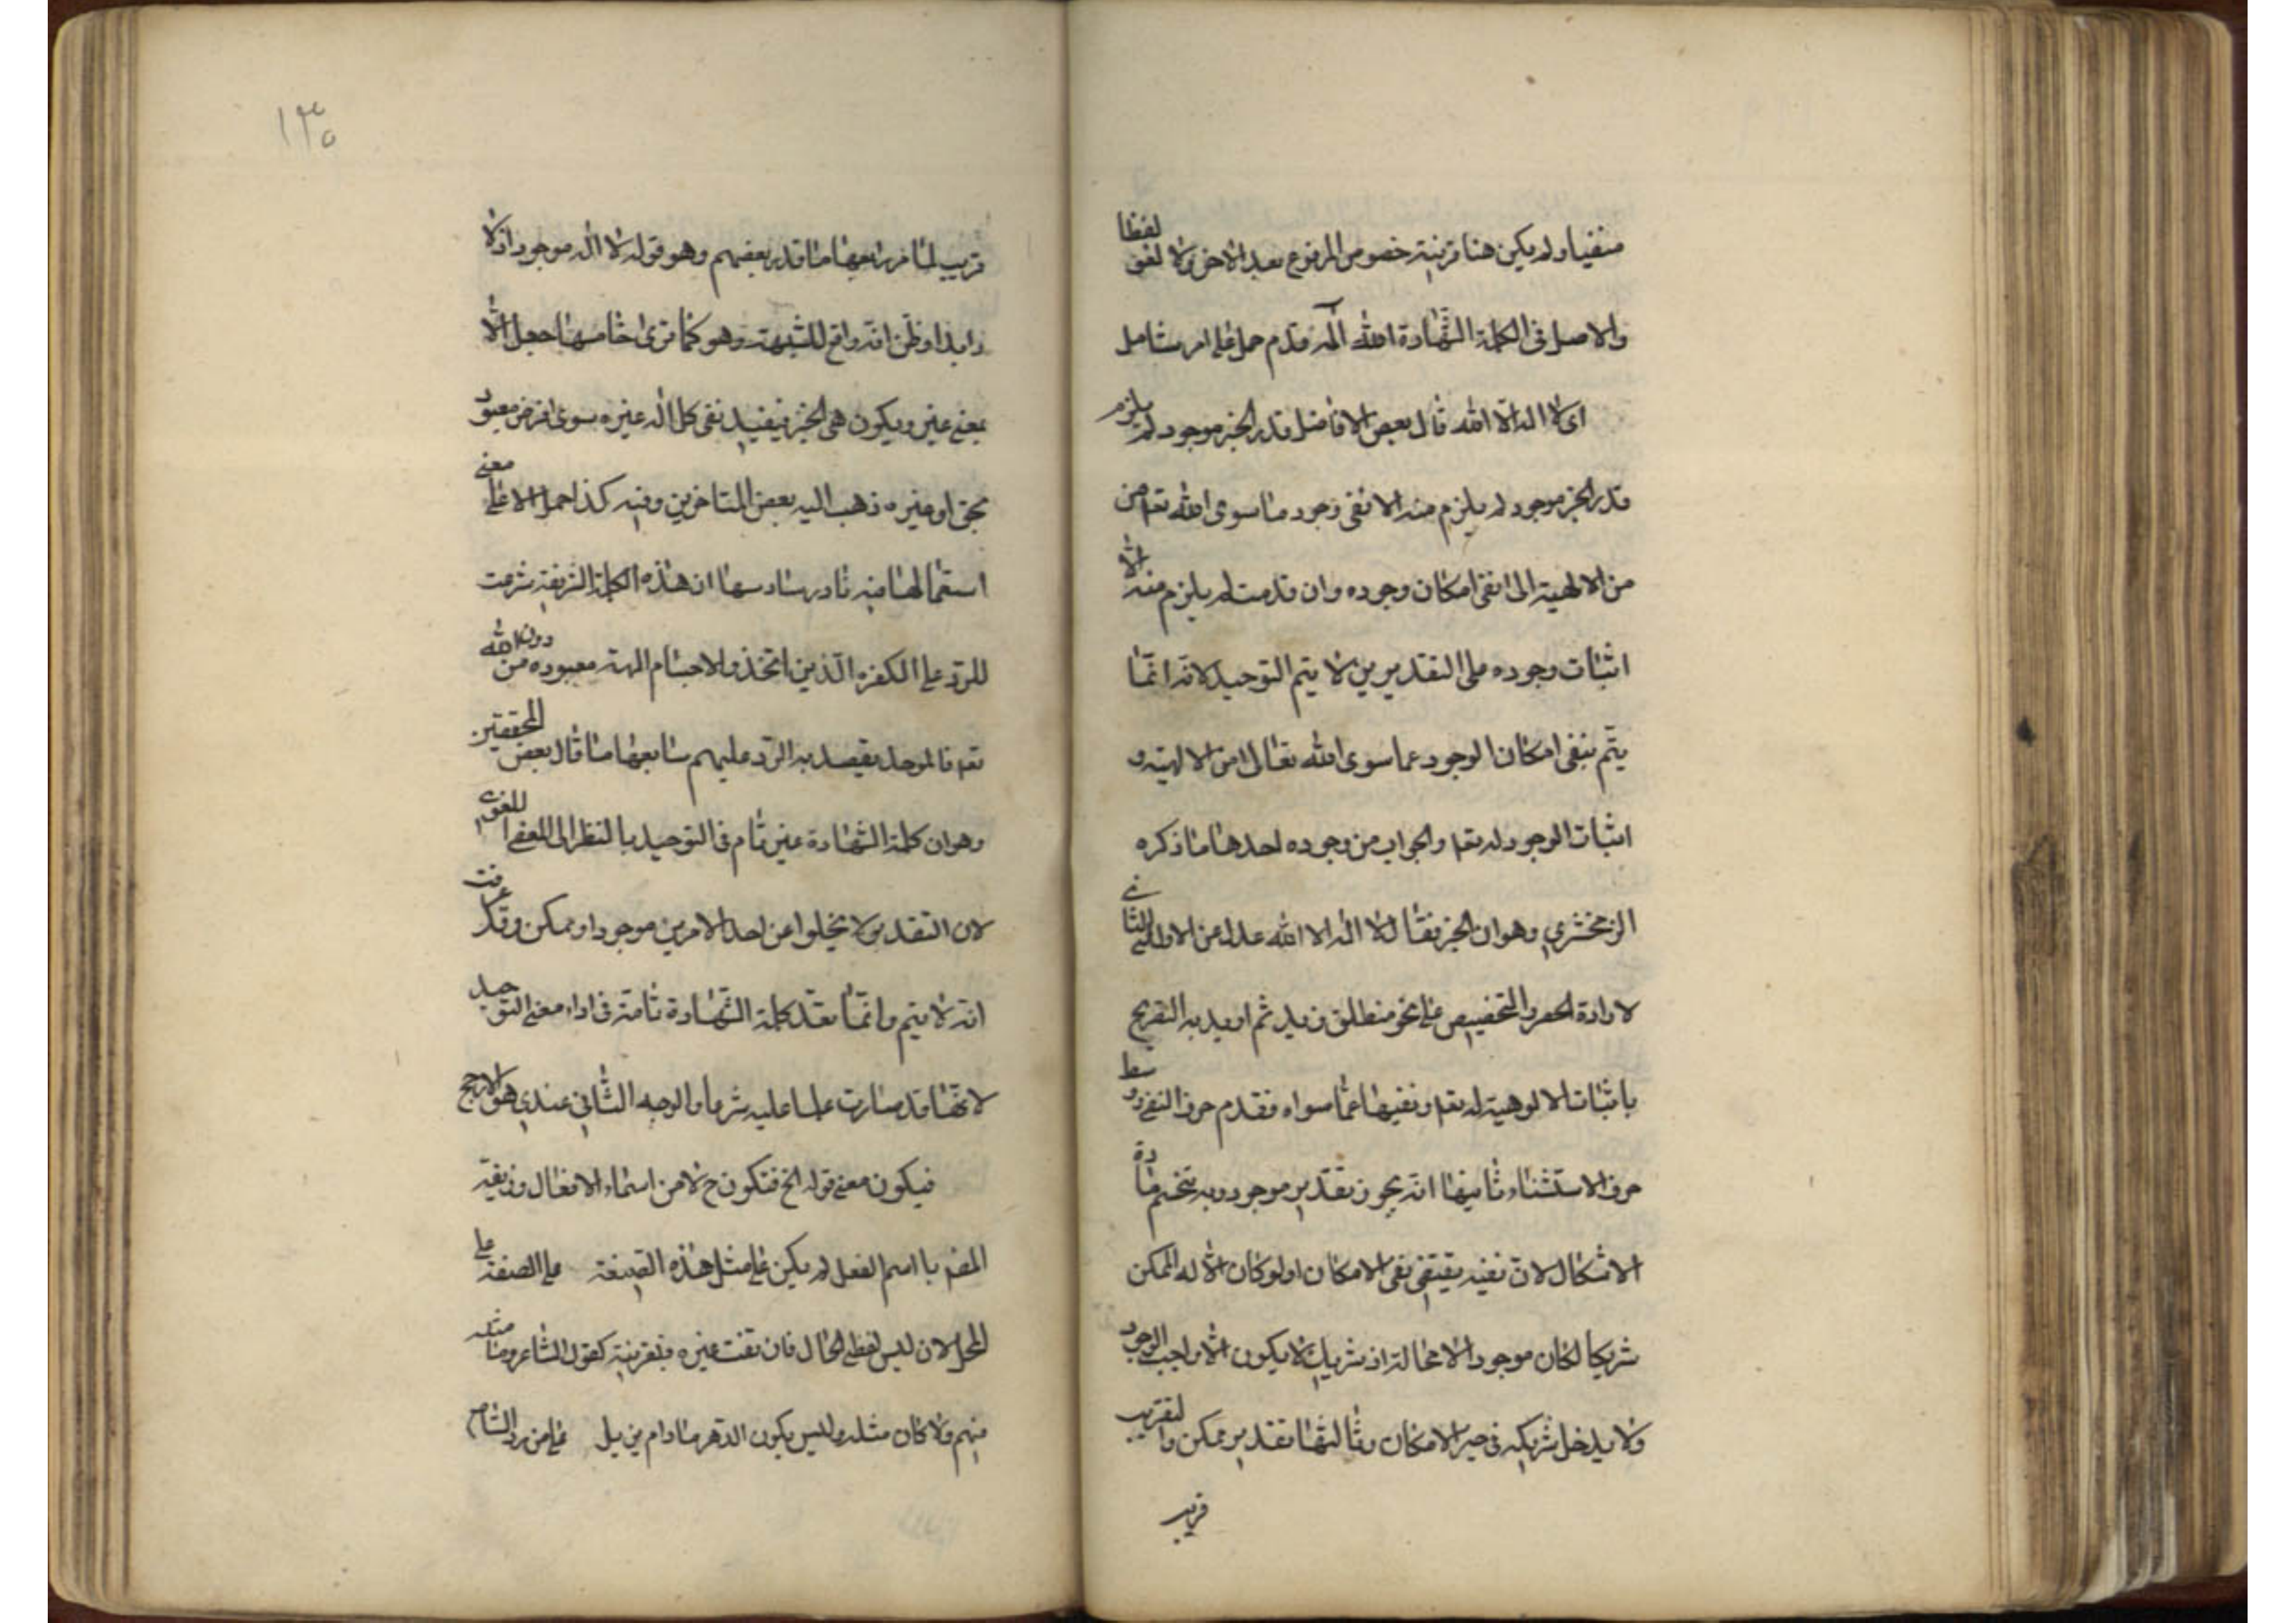 منفيا ولم يكن هنا قرينة خصوص المرفوع بعد الاخرى لا لغو لفظا
والاصل فى الكلمة الشهادة الله اله قدم حمل على امر شامل
اى لا اله الا الله قال بعض الافاضل قدر الخبر موجود لم يلزم
قدر الخبر موجود لم يلزم منه الا نفى وجود ما سوى الله تعم من
من الالهية الى انفى امكان وجوده وان قدمت لم يلزم منه الا
اثبات وجوده على التقديرين لا يتم التوحيد لانه انما
يتم بنفى امكان الوجود عما سوى الله تعالى من الالهية و
اثبات الوجود له تعم والجواب من وجوده احدها ما ذكره
الزمخشري وهو ان الخبر فقال لا اله الا الله عدل عن الاول الى الثانى
لا رادة الحصر والتخصيص على نحو منطلق زيد ثم اريد به التفريح
باثبات الالوهية له تعم ونفيها عما سواه فقدم حرف النفى ووسط
حرف الاستثناء ثانيها انه يجوز تقدير موجود وبه تنحسم مادة
الاشكال لان نفيه يقتضى نفى الامكان اولو كان الا له الممكن
شريكا لكان موجودا لا محالة اذ شريك لا يكون الا واجب الوجود
ولا يدخل شريكه فى حيز الامكان وثالثها تقدير ممكن والتقريب
قريب
١٣٥
قريب لما مر رابعها ما قدر بعضهم وهو قوله لا اله موجود اذ لا
دابدا وظن انه دافع للشبهة وهو كما ترى خامسها جعل الا
بمعنى غير ويكون هى الخبر فيفيد نفى كل اله غيره سوى افرض معبود
بحق او غيره ذهب اليه بعض المتاخرين وفيه كذا حمل الا على معنى
استعمالها فيه نادر سادسها ان هذه الكلمة الشريفة شرعت
للرد على الكفرة الذين اتخذوا الاجسام الهة معبوده من دون الله
تعم فالموحد يقصد به الرد عليهم سابعها ما قال بعض المحققين
وهو ان كلمة الشهادة غير تام فى التوحيد بالنظر الى المعنى اللغوى
لان التقدير لا يخلوا عن احد الامرين موجود او ممكن وقد عرفت
انه لا يتم وانما تعد كلمة الشهادة تامة فى اداء معنى التوحيد
لانها قد صارت علما عليه شرعا والوجه الثانى عندي هو الارجح
فيكون معنى قوله الخ فتكون ح لا من اسماء الافعال وزيفه
المض با اسم الفعل لم يكن على مثل هذه الصيغة على الصفة على
المحل لان ليس لفظ الحال فان نفت غيره فبقرينة كقول الشاعر وما مثله
منهم ولا كان مثله وليس يكون الدهر ما دام يذبل على من رد الشام